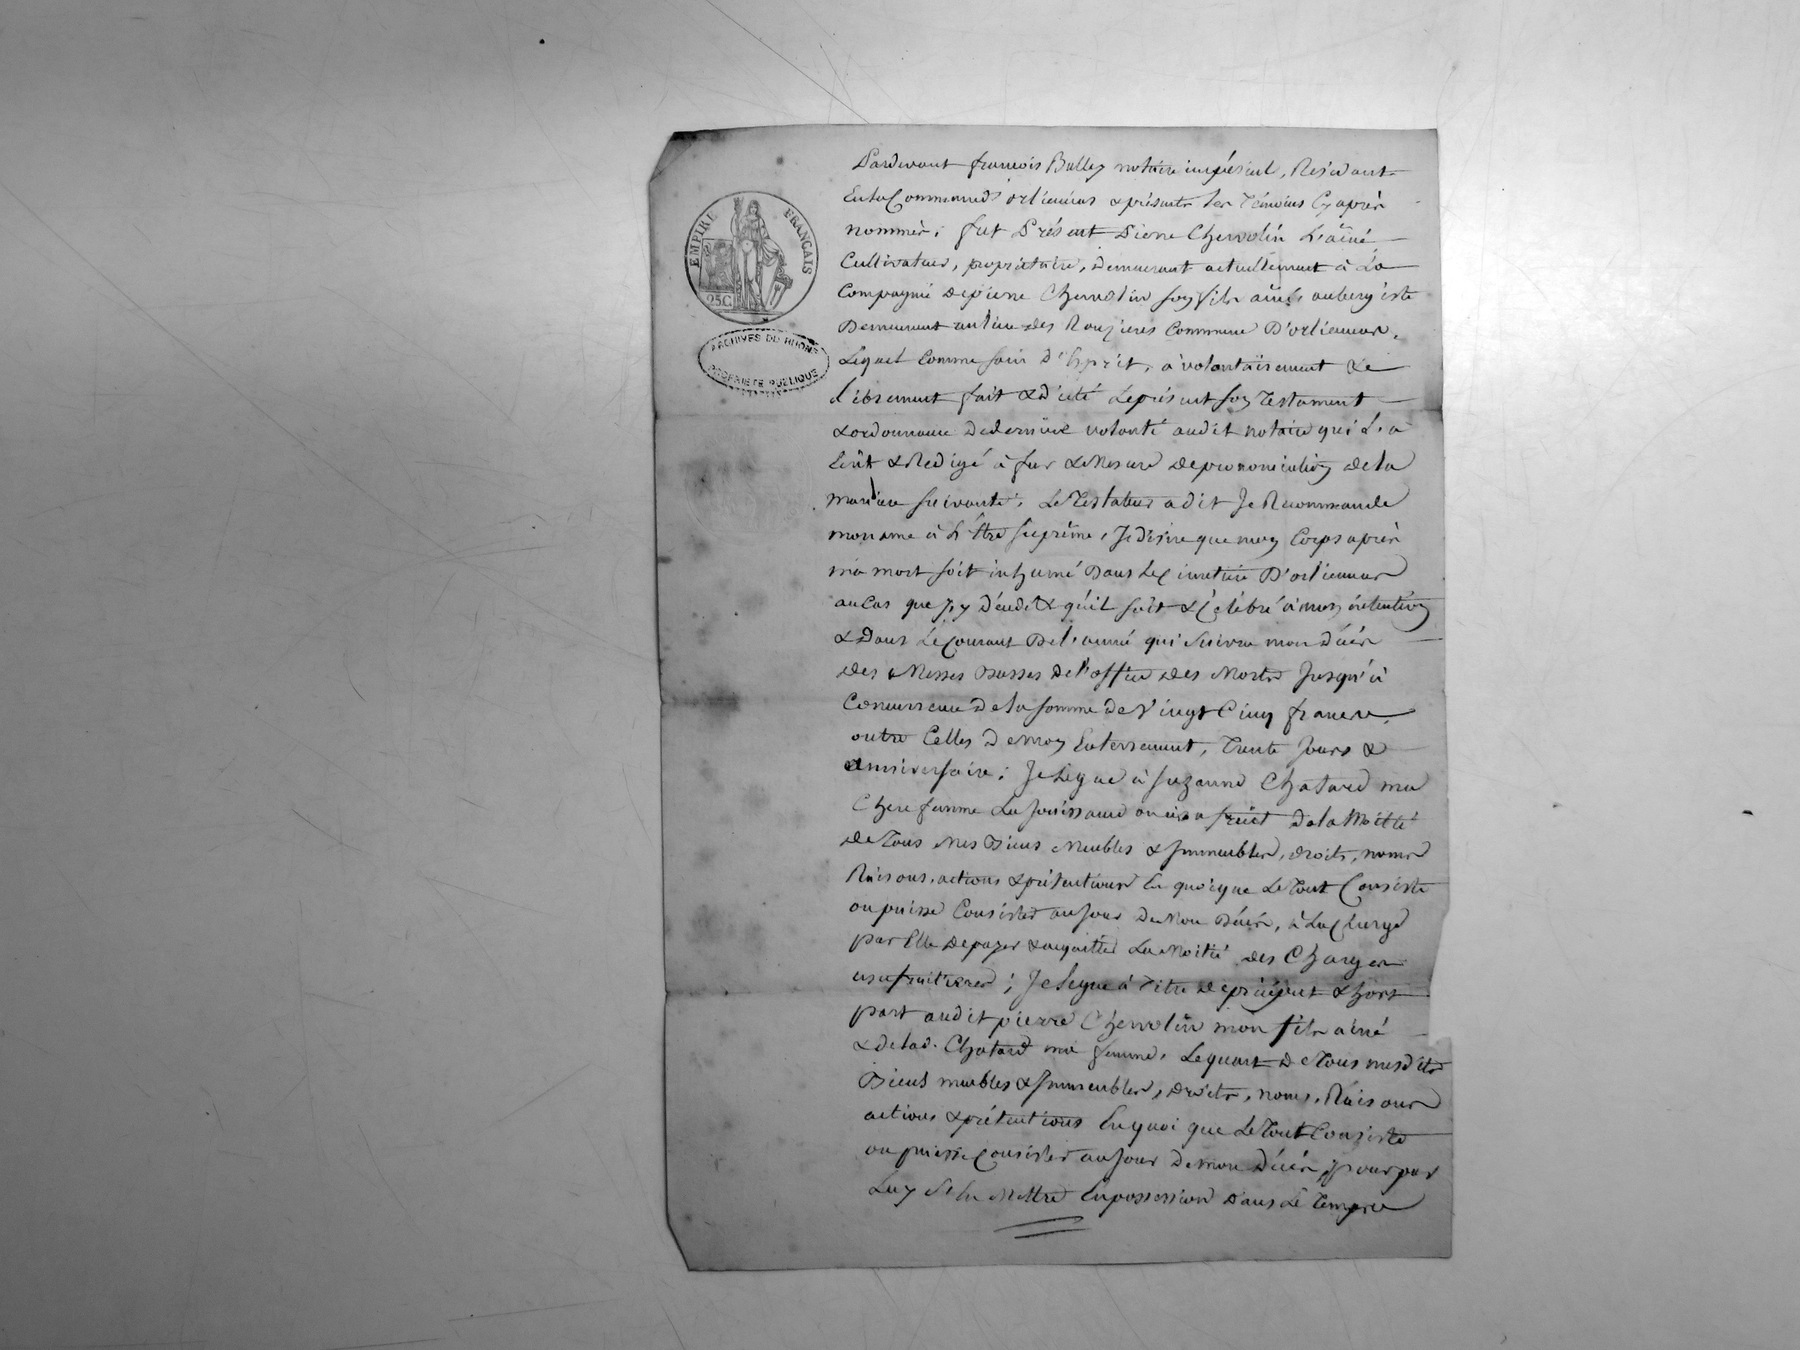 EMPIRE FRANÇAIS
25C.
ARCHIVES DU RHONE
PROPRIETE PUBLIQUE
Pardevant françois Balley notaire impérial, Résidant
En la Commune d'orliénas & présents les Témoins Cy après
nommés; fut Présent Pierre Chervolin L'ainé
Cultivateur, propriétaire, demeurant actuellement à La
Compagnie de pierre Chervolin son fils ainé aubergiste
Demeurant au lieu des Commune D'orlienas,
Lequel Comme sain D'Esprit, à volontairement &
librement fait & dicté Le présent son Testament
& ordonnance de dernière volonté audit notaire qui L'a
Ecrit & Rédigé à fur & Mesure de prononciation de la
manière suivante; Le Testateur a dit Je Recommande
mon ame à L'Etre suprême, Je désire que mon Corps après
ma mort soit inhumé Dans Le Cimetière D'orlienas
au Cas que J'y décède & qu'il soit Célébré à mon intention
& Dans Le Courant De l'année qui suivra mon Décès
des Messes Basses de l'office des Morts Jusqu'à
Concurrence De la somme de Vingt Cinq francs
outre Celles de mon Enterrement, Trente Jours &
anniversaire; Je Legue à Suzanne Chatard ma
Chere femme La Jouissance ou usufruit de la Moitié
de Tous Mes Biens Meubles & Immeubles, droits, noms
Raisons, actions & prétentions En quoique Le Tout Consiste
ou puisse Consister au Jour de Mon Décès, à La Charge
par Elle de payer & acquitter La Moitié des Charges
usufruitieres; Je Legue à Titre de préciput & hors
part audit pierre Chervolin mon fils ainé
& de lad. Chatard ma femme, Le quart de Tous mesdits
Biens meubles & Immeubles, droits, noms, Raisons
actions & prétentions En quoi que Le Tout Consiste
ou puisse Consister au Jour de mon Décès, pour par
Luy S'en Mettre En possession Dans Le Temps